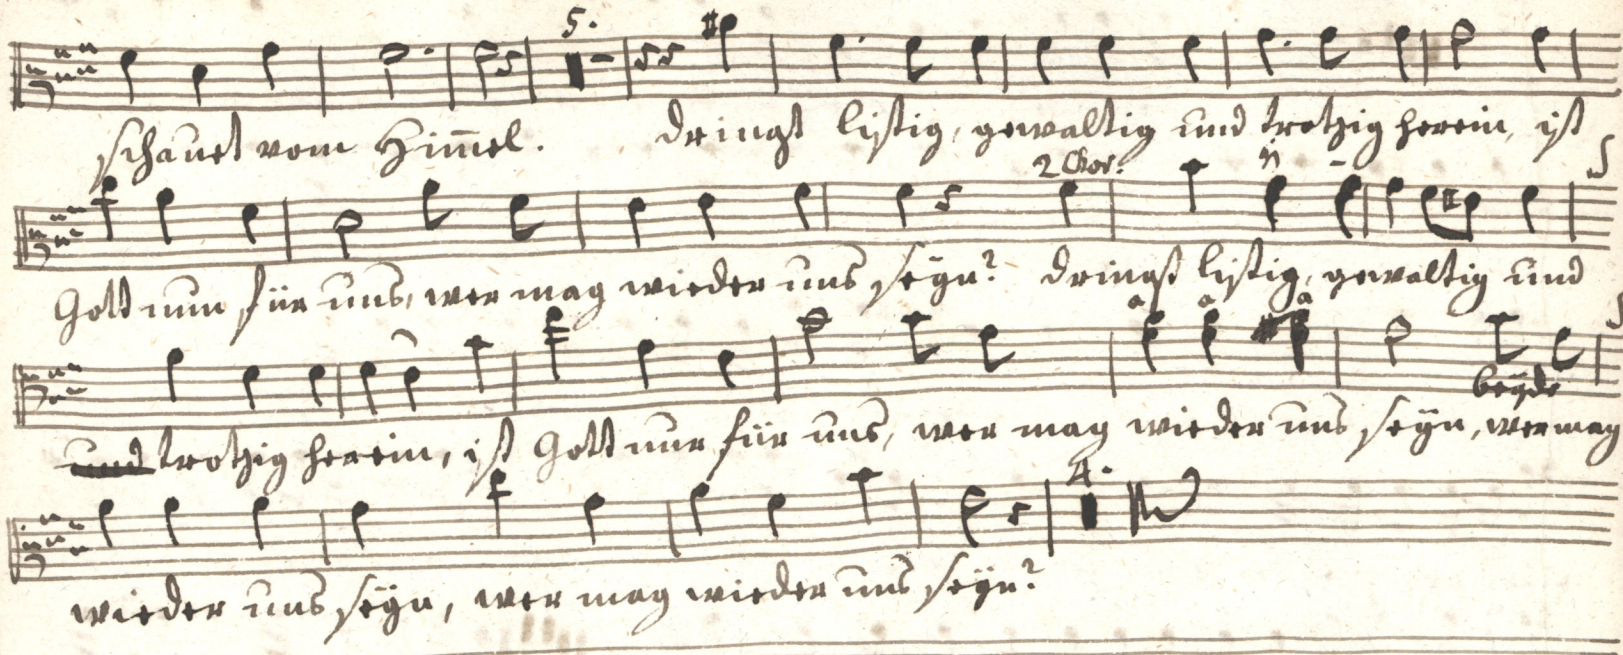 5.
schauet vom Him̄el. dringst listig, gewaltig und trotzig herein, ist
2 Chor.
Gott nun für uns, wer mag wieder uns seÿn? dringst listig, gewaltig und
a a a
beÿde
und trotzig herein, ist Gott nur für uns, wer mag wieder uns seÿn, wer mag
4.
wieder uns seÿn, wer mag wieder uns seÿn?